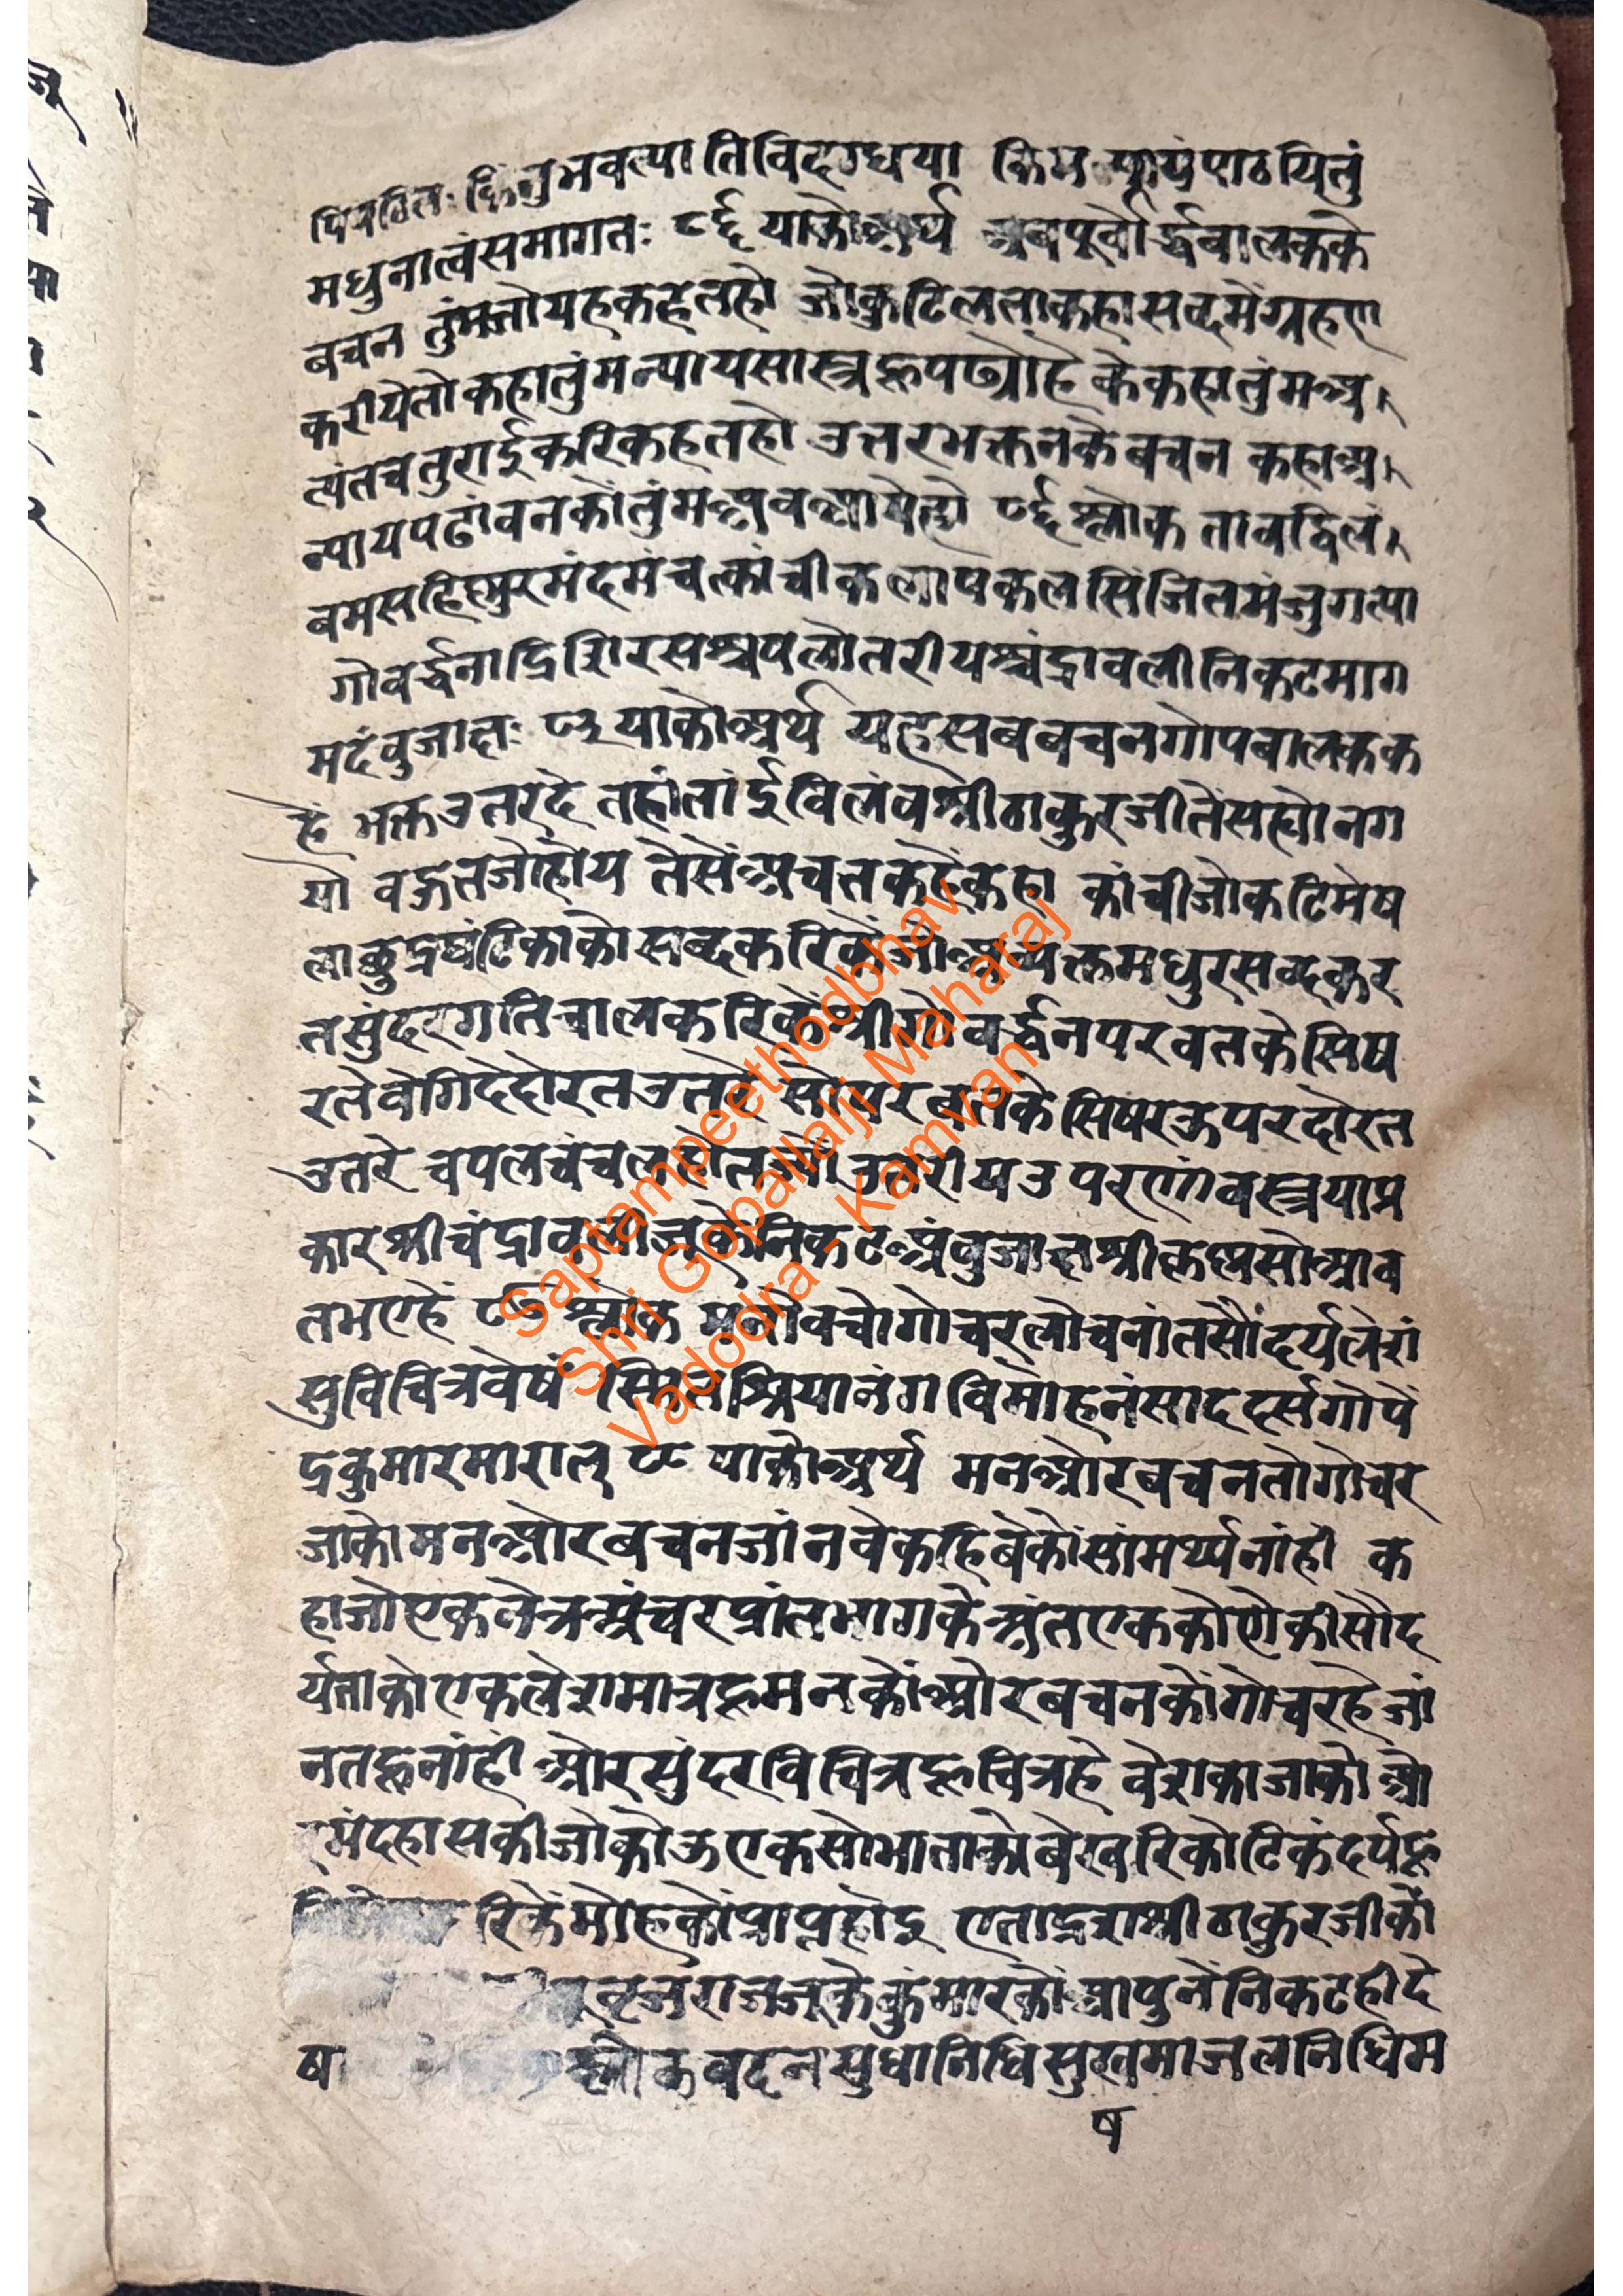 किंतु भवत्पातिविदग्धया किम पठयितुं
मधुनात्वंसमागतः ८६ याकोअर्थ अबपूर्वार्द्धबालकके
बचन तुंमतोयहकहतहो जोकुटिलताकहासब्दमेंग्रहण
करीयेतोकहातुंमन्यायसास्त्रहूपढ्योहै कैकहातुंमअ
त्यंतचतुराईकरिकहतहो उत्तरभक्तनकेबचन कहाअ
न्यायपढांवनकोंतुंमअवआयेहो ८६ श्लोक तावद्विलं
बमसहिष्णुरमंदमंचत्कांचीकलापकलसिंजितमंजुगत्या
गोवर्द्धनाद्रिशिरसश्चपलोतरीयश्चंद्रावलीनिकटमाग
मदंबुजाक्षः ८७ याकोअर्थ यहसबबचनगोपबालकक
हें भक्तउतरदें तहांतांईविलंबश्रीठाकुरजीतेंसह्योनग
यो वक्रतजोहोय तेसेंअचतकहेंकहा कांचीजोकटिमेष
लाक्षुद्रघंटिकाकोसब्दकरिकेंजोअव्यक्तमधुरसब्दकर
तसुंदरगतिचालकरिकेंश्रीगोवर्द्धनपरवतकेसिष
रतेंवेगिदेदोरतउतरे सोपरवतकेसिषरऊपरदोरत
उतरे चपलचंचलहोतजो उतरीयउपरणांवस्त्रयाप्र
कारश्रीचंद्रावलीजूकेनिकटअंबुजाक्षश्रीकृष्णसोआव
तभएहें श्लोक मनोवचोगोचरलोचनांतसौंदर्यलेशं
सुविचित्रवेषं स्मितश्रियानंगविमोहनंसाददर्सगोपें
द्रकुमारमारात् ८८ याकोअर्थ मनओरबचनतोगोचर
जाकोमनओरबचनजांनवेकहिबेकोंसांमर्थ्यनांही क
हाजोएकनेत्रअंचरप्रांतभागकेअंतएककोणेकीसौंद
र्यताकोएकलेशमात्रहूमनकोंओरबचनकोंगोचरहेजां
नतहूनांही ओरसुंदरविचित्रहूचित्रहे वेशकाजाको ओ
रमंदहासकीजोकोऊएकसोभाताकोंबेखरिकोटिकंदर्पहू
रिकेंमोहकोंप्राप्तहोइ एताद्रशश्रीठाकुरजीकों
वृजराजजूकेकुंमारकोंआपुनेंनिकटहीदे
ष श्लोक वदनसुधानिधिसुखमाजलनिधिम
ष
Saptampeethodbhav
Shri Gopallalji Maharaj
Vadodra - Kamvan